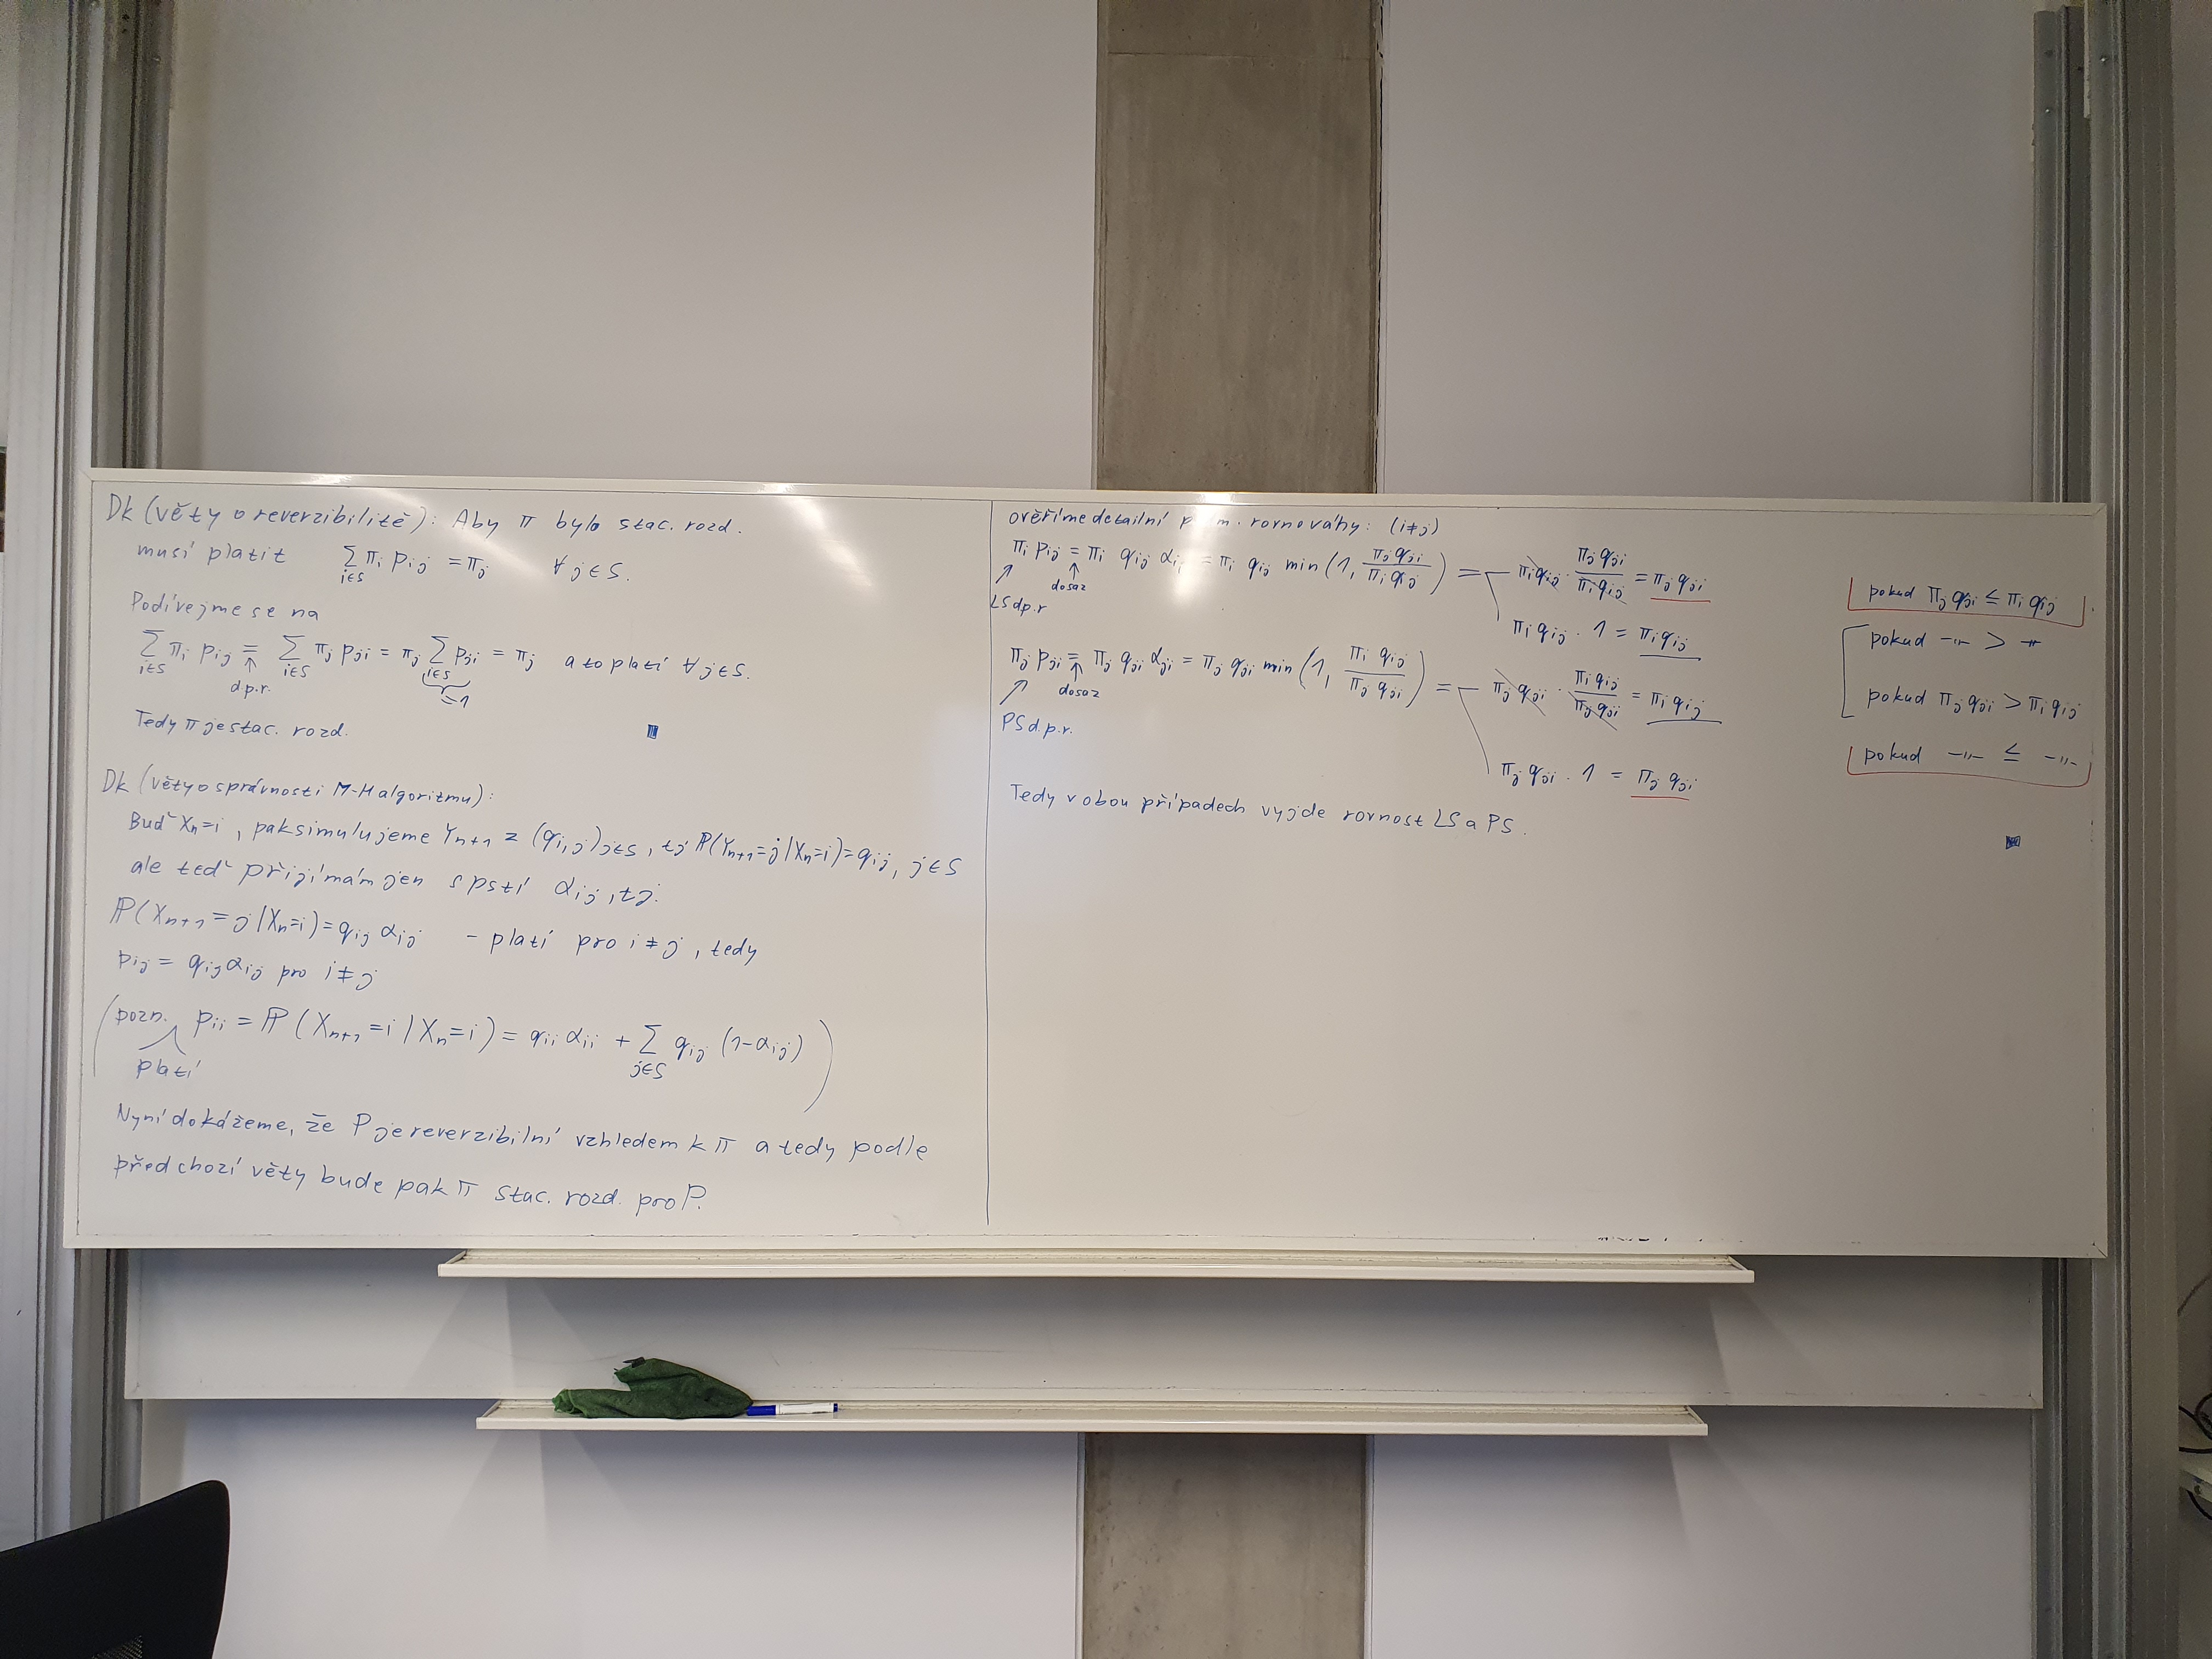 Dk (věty o reverzibilitě): Aby π bylo stac. rozd.
musí platit ∑_{i∈S} π_i p_ij = π_j ∀ j∈S.
Podívejme se na
∑_{i∈S} π_i p_ij = ∑_{i∈S} π_j p_ji = π_j ∑_{i∈S} p_ji = π_j a to platí ∀ j∈S.
↑
d.p.r.
=1
Tedy π je stac. rozd.
Dk (věty o správnosti M-H algoritmu):
Buď X_n=i, pak simulujeme Y_{n+1} z (q_{i,j})_{j∈S}, tj ℙ(Y_{n+1}=j|X_n=i)=q_ij, j∈S
ale teď přijímám jen s pstí α_ij, tj.
ℙ(X_{n+1}=j|X_n=i)=q_ij α_ij - platí pro i≠j, tedy
p_ij = q_ij α_ij pro i≠j
(pozn. p_ii = ℙ(X_{n+1}=i|X_n=i) = q_ii α_ii + ∑_{j∈S} q_ij (1-α_ij))
platí
Nyní dokážeme, že P je reverzibilní vzhledem k π a tedy podle
předchozí věty bude pak π stac. rozd. pro P.
ověříme detailní m. rovnováhy: (i≠j)
π_i p_ij = π_i q_ij α_ij = π_i q_ij min(1, π_j q_ji / π_i q_ij) = π_i q_ij · π_j q_ji / π_i q_ij = π_j q_ji pokud π_j q_ji ≤ π_i q_ij
↗ LS d.p.r ↑ dosaz
π_i q_ij · 1 = π_i q_ij pokud -"- > -"-
π_j p_ji = π_j q_ji α_ji = π_j q_ji min(1, π_i q_ij / π_j q_ji) = π_j q_ji · π_i q_ij / π_j q_ji = π_i q_ij pokud π_j q_ji > π_i q_ij
↗ PS d.p.r. ↑ dosaz
π_j q_ji · 1 = π_j q_ji pokud -"- ≤ -"-
Tedy v obou případech vyjde rovnost LS a PS.